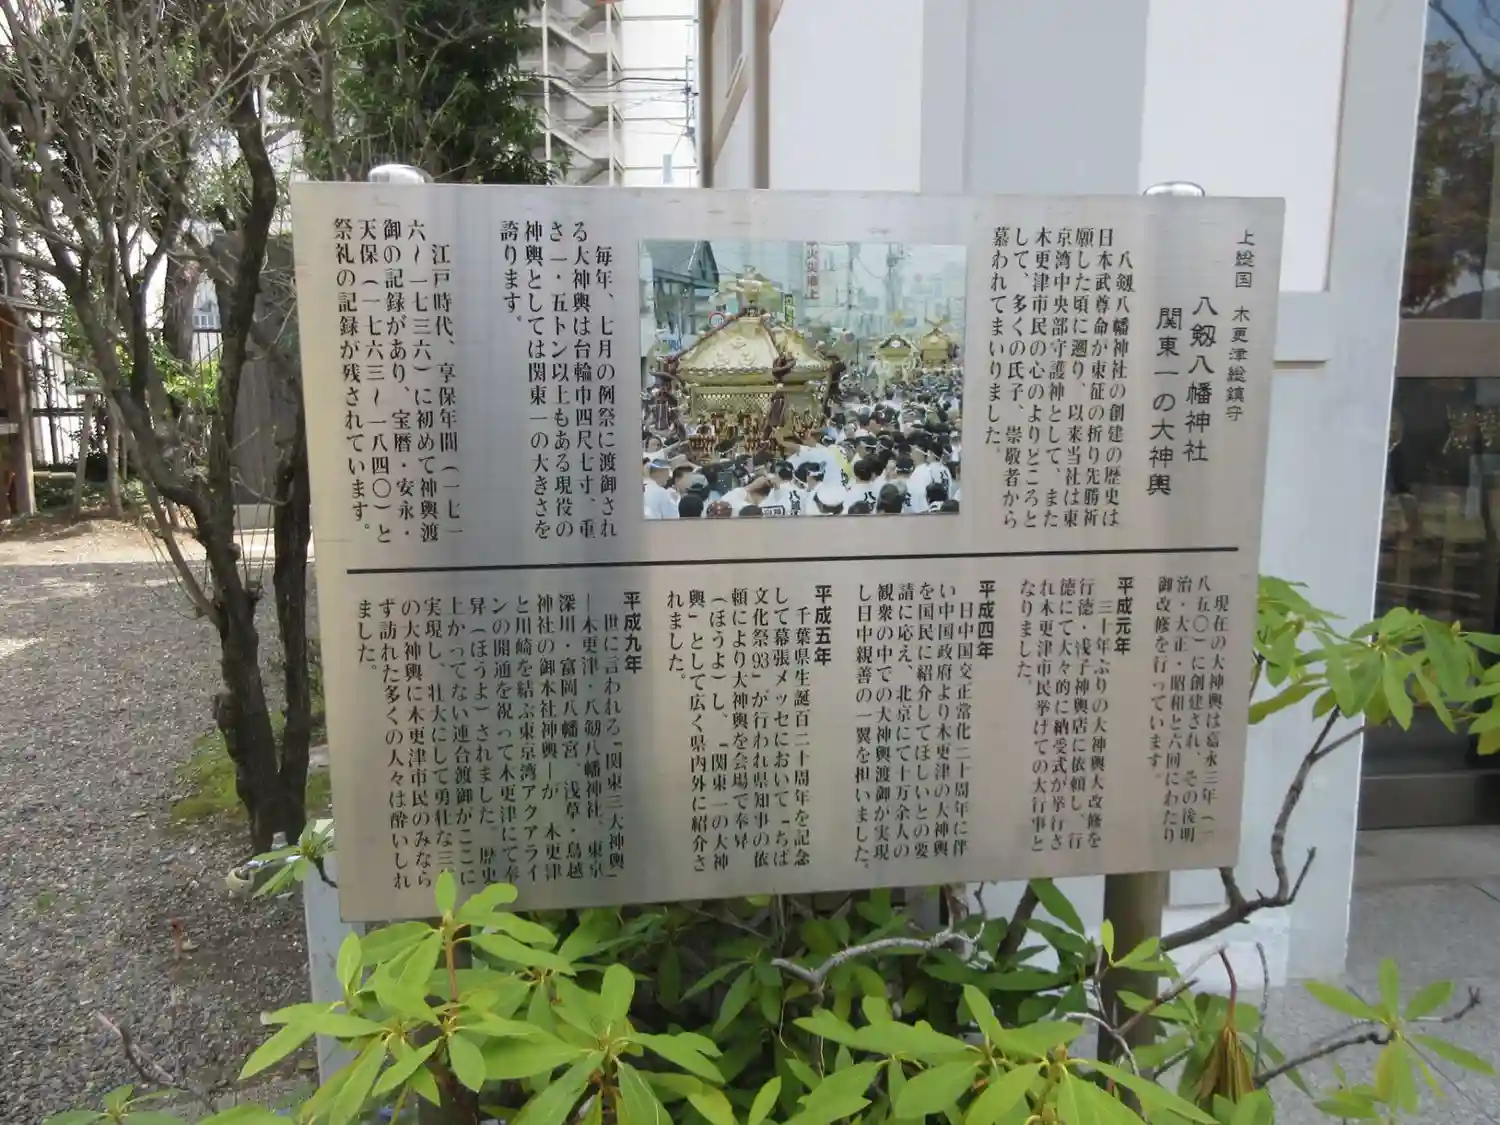 上総国 木更津総鎮守
八剱八幡神社
関東一の大神輿
八剱八幡神社の創建の歴史は
日本武尊命が東征の折り先勝祈
願した頃に遡り、以来当社は東
京湾中央部守護神として、また
木更津市民の心のよりどころと
して、多くの氏子、崇敬者から
慕われてまいりました。
毎年、七月の例祭に渡御され
る大神輿は台輪巾四尺七寸、重
さ一・五トン以上もある現役の
神輿としては関東一の大きさを
誇ります。
江戸時代、享保年間(一七一
六~一七三六)に初めて神輿渡
御の記録があり、宝暦・安永・
天保(一七六三~一八四〇)と
祭礼の記録が残されています。
現在の大神輿は嘉永三年(一
八五〇)に創建され、その後明
治・大正・昭和と六回にわたり
御改修を行っています。
平成元年
三十年ぶりの大神輿大改修を
行徳・浅子神輿店に依頼し、行
徳にて大々的に納受式が挙行さ
れ木更津市民挙げての大行事と
なりました。
平成四年
日中国交正常化二十周年に伴
い中国政府より木更津の大神輿
を国民に紹介してほしいとの要
請に応え、北京にて十万余人の
観衆の中での大神輿渡御が実現
し日中親善の一翼を担いました。
平成五年
千葉県生誕百二十周年を記念
して幕張メッセにおいて『ちば
文化祭93』が行われ県知事の依
頼により大神輿を会場で奉昇
(ほうよ)し、『関東一の大神
輿』として広く県内外に紹介さ
れました。
平成九年
世に言われる『関東三大神輿』
―木更津・八剱八幡神社、東京
深川・富岡八幡宮、浅草・鳥越
神社の御本社神輿―が、木更津
と川崎を結ぶ東京湾アクアライ
ンの開通を祝って木更津にて奉
昇(ほうよ)されました。歴史
上かってない連合渡御がここに
実現し、壮大にして勇壮な三
の大神輿に木更津市民のみなら
ず訪れた多くの人々は酔いしれ
ました。